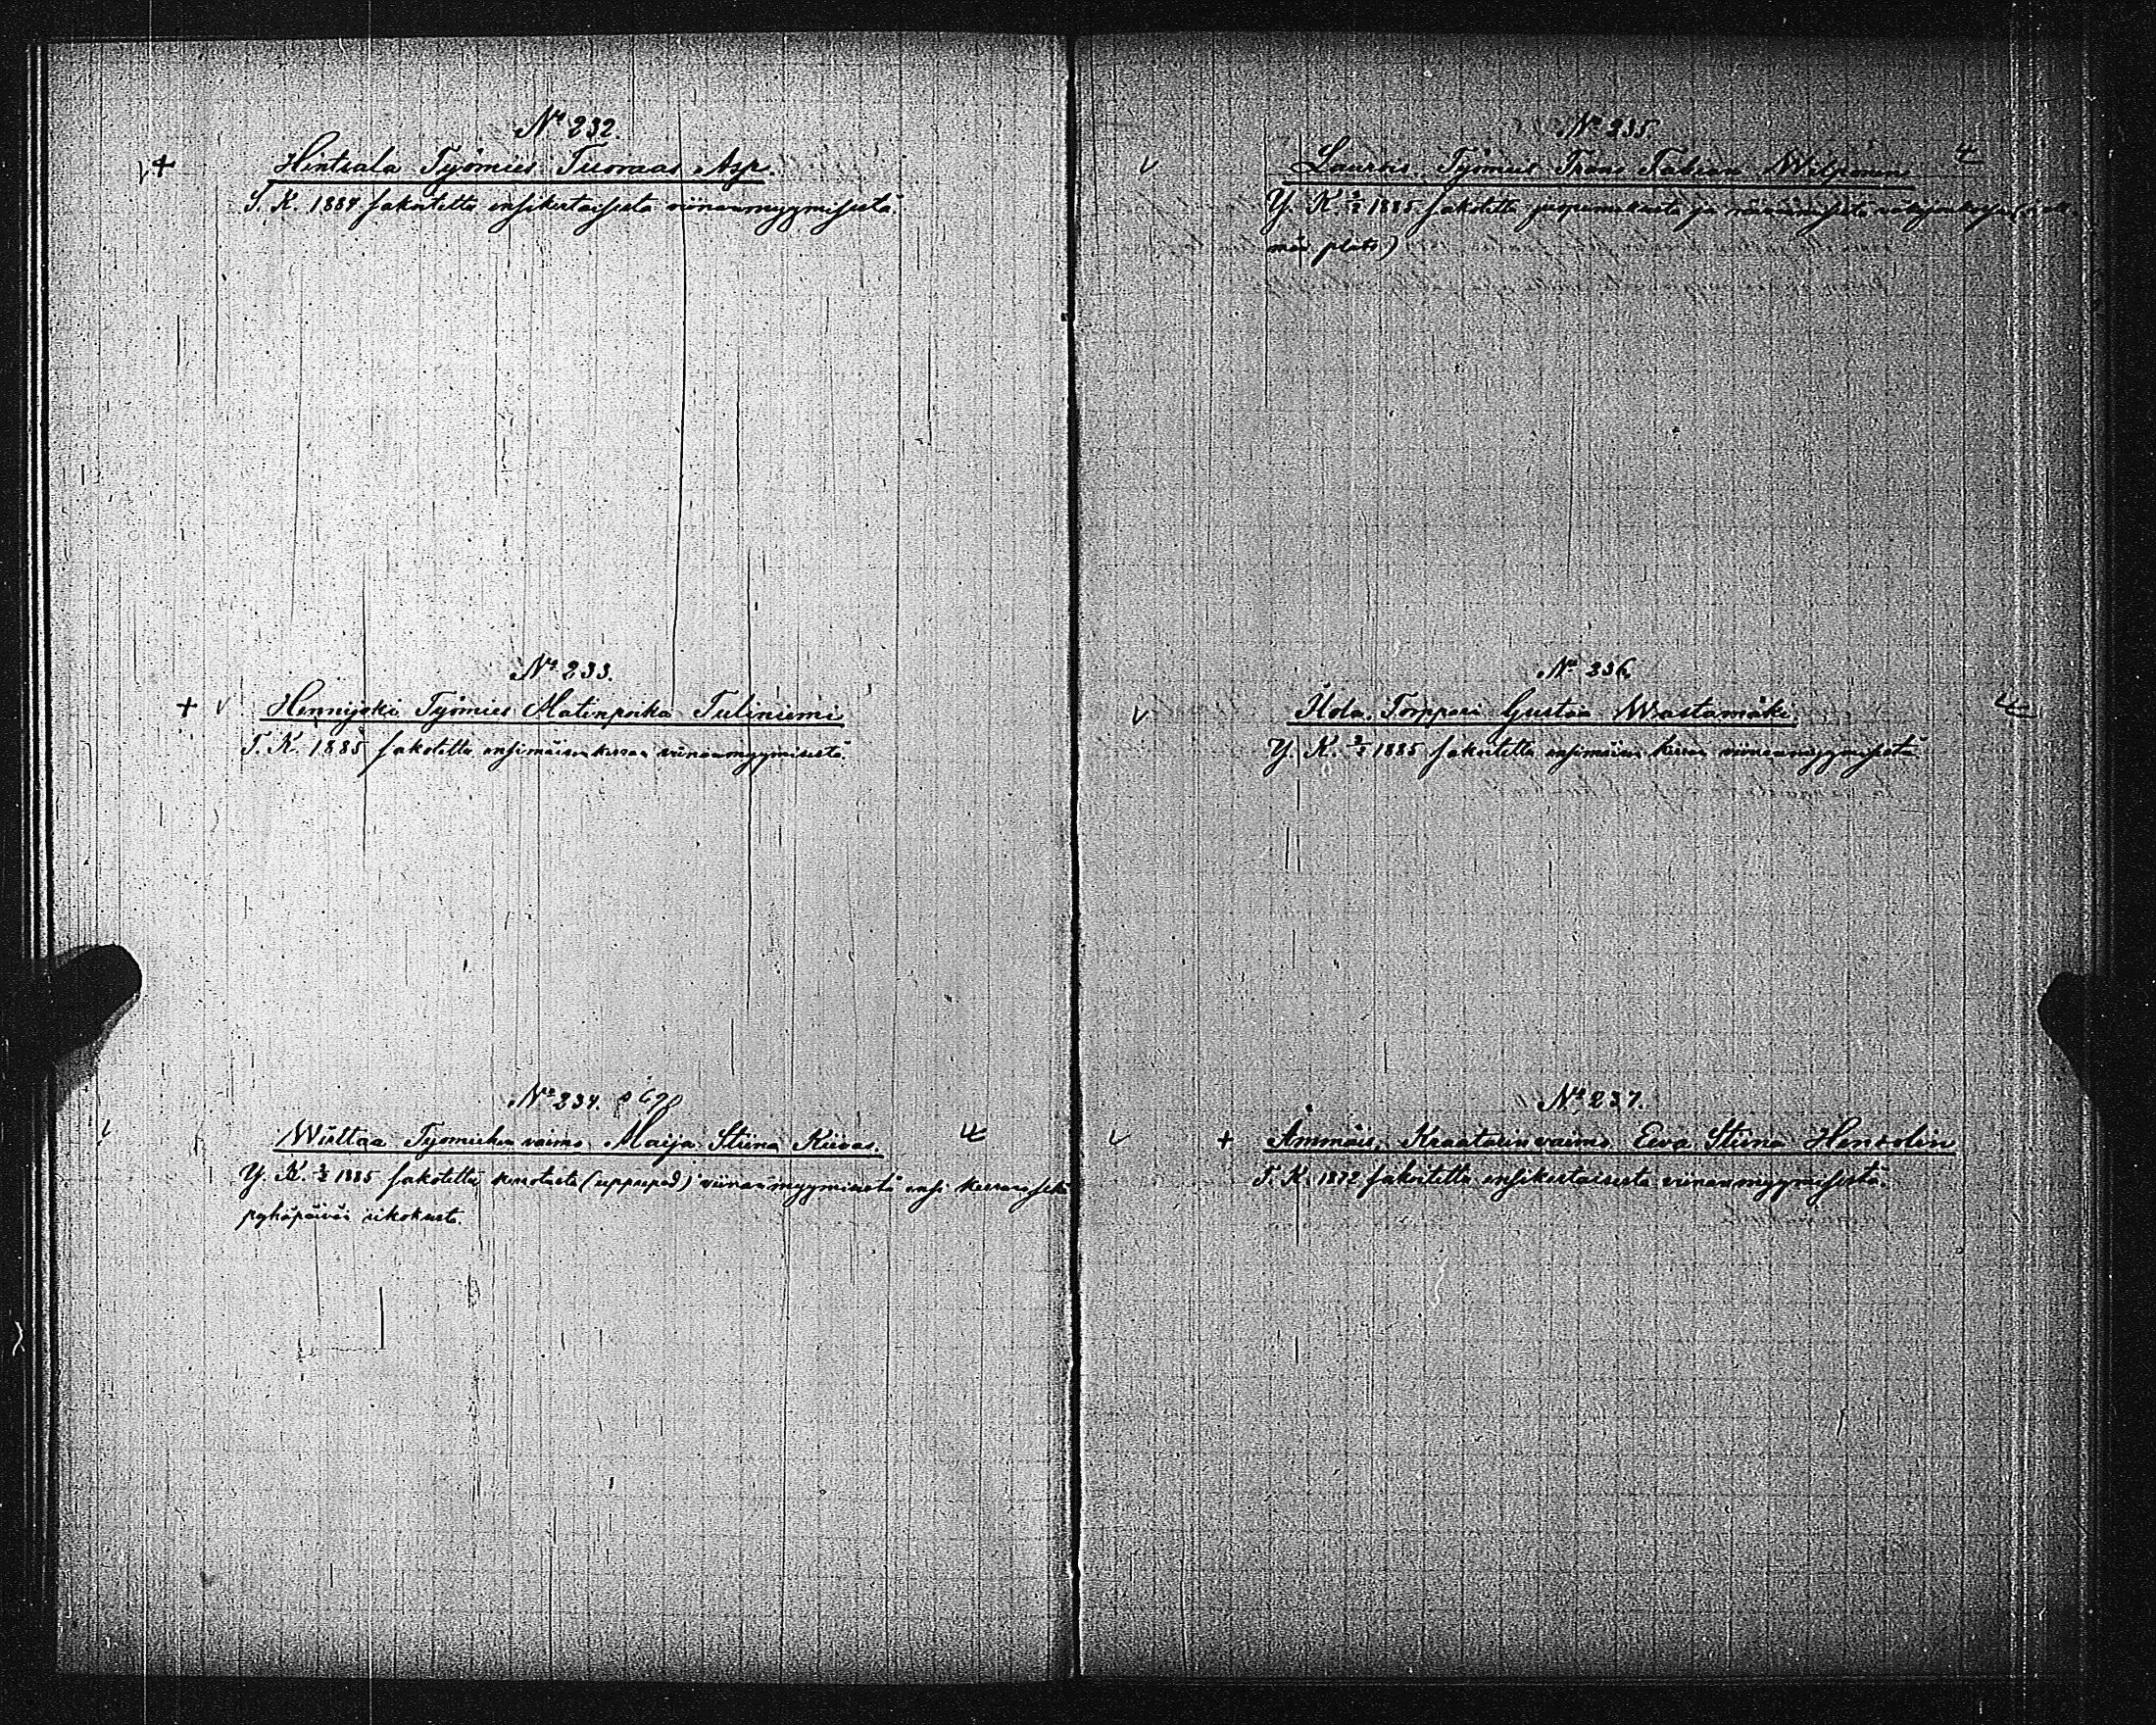 № 232.
+ Hentsala Työmies Tuomas Asp.
S. K. 1884 sakoitettu ensikertaisesta viinanmyymisestä.
№ 233.
+ v Hennijoki Työmies Matinpoika Tuliniemi
T. K. 1885 sakotettu ensimäisen kerran viinanmyymisestä.
№ 234.
v Wirttaa Työmiehen vaimo Maija Stiina Kuvas.
Y. K. 1885 sakotettu (uppsped) viinanmyymisestä ensi kerran sekä
pyhäpäivän rikokust.
№ 235.
v Työmies Frans Fabian Wilponen
Y. K. 1885 sakotettu juopumuksesta ja
plats)
№ 236
v Torppari Gustaa Wastamäki
Y. K. 1885 sakoitettu ensimäisen kerran viinanmyymisestä
№ 237.
v + Ämmäis, Kraatarin vaimo Eeva Stina
T. K. 1872 sakoitettu ensikertaisesta viinanmyymisestä.